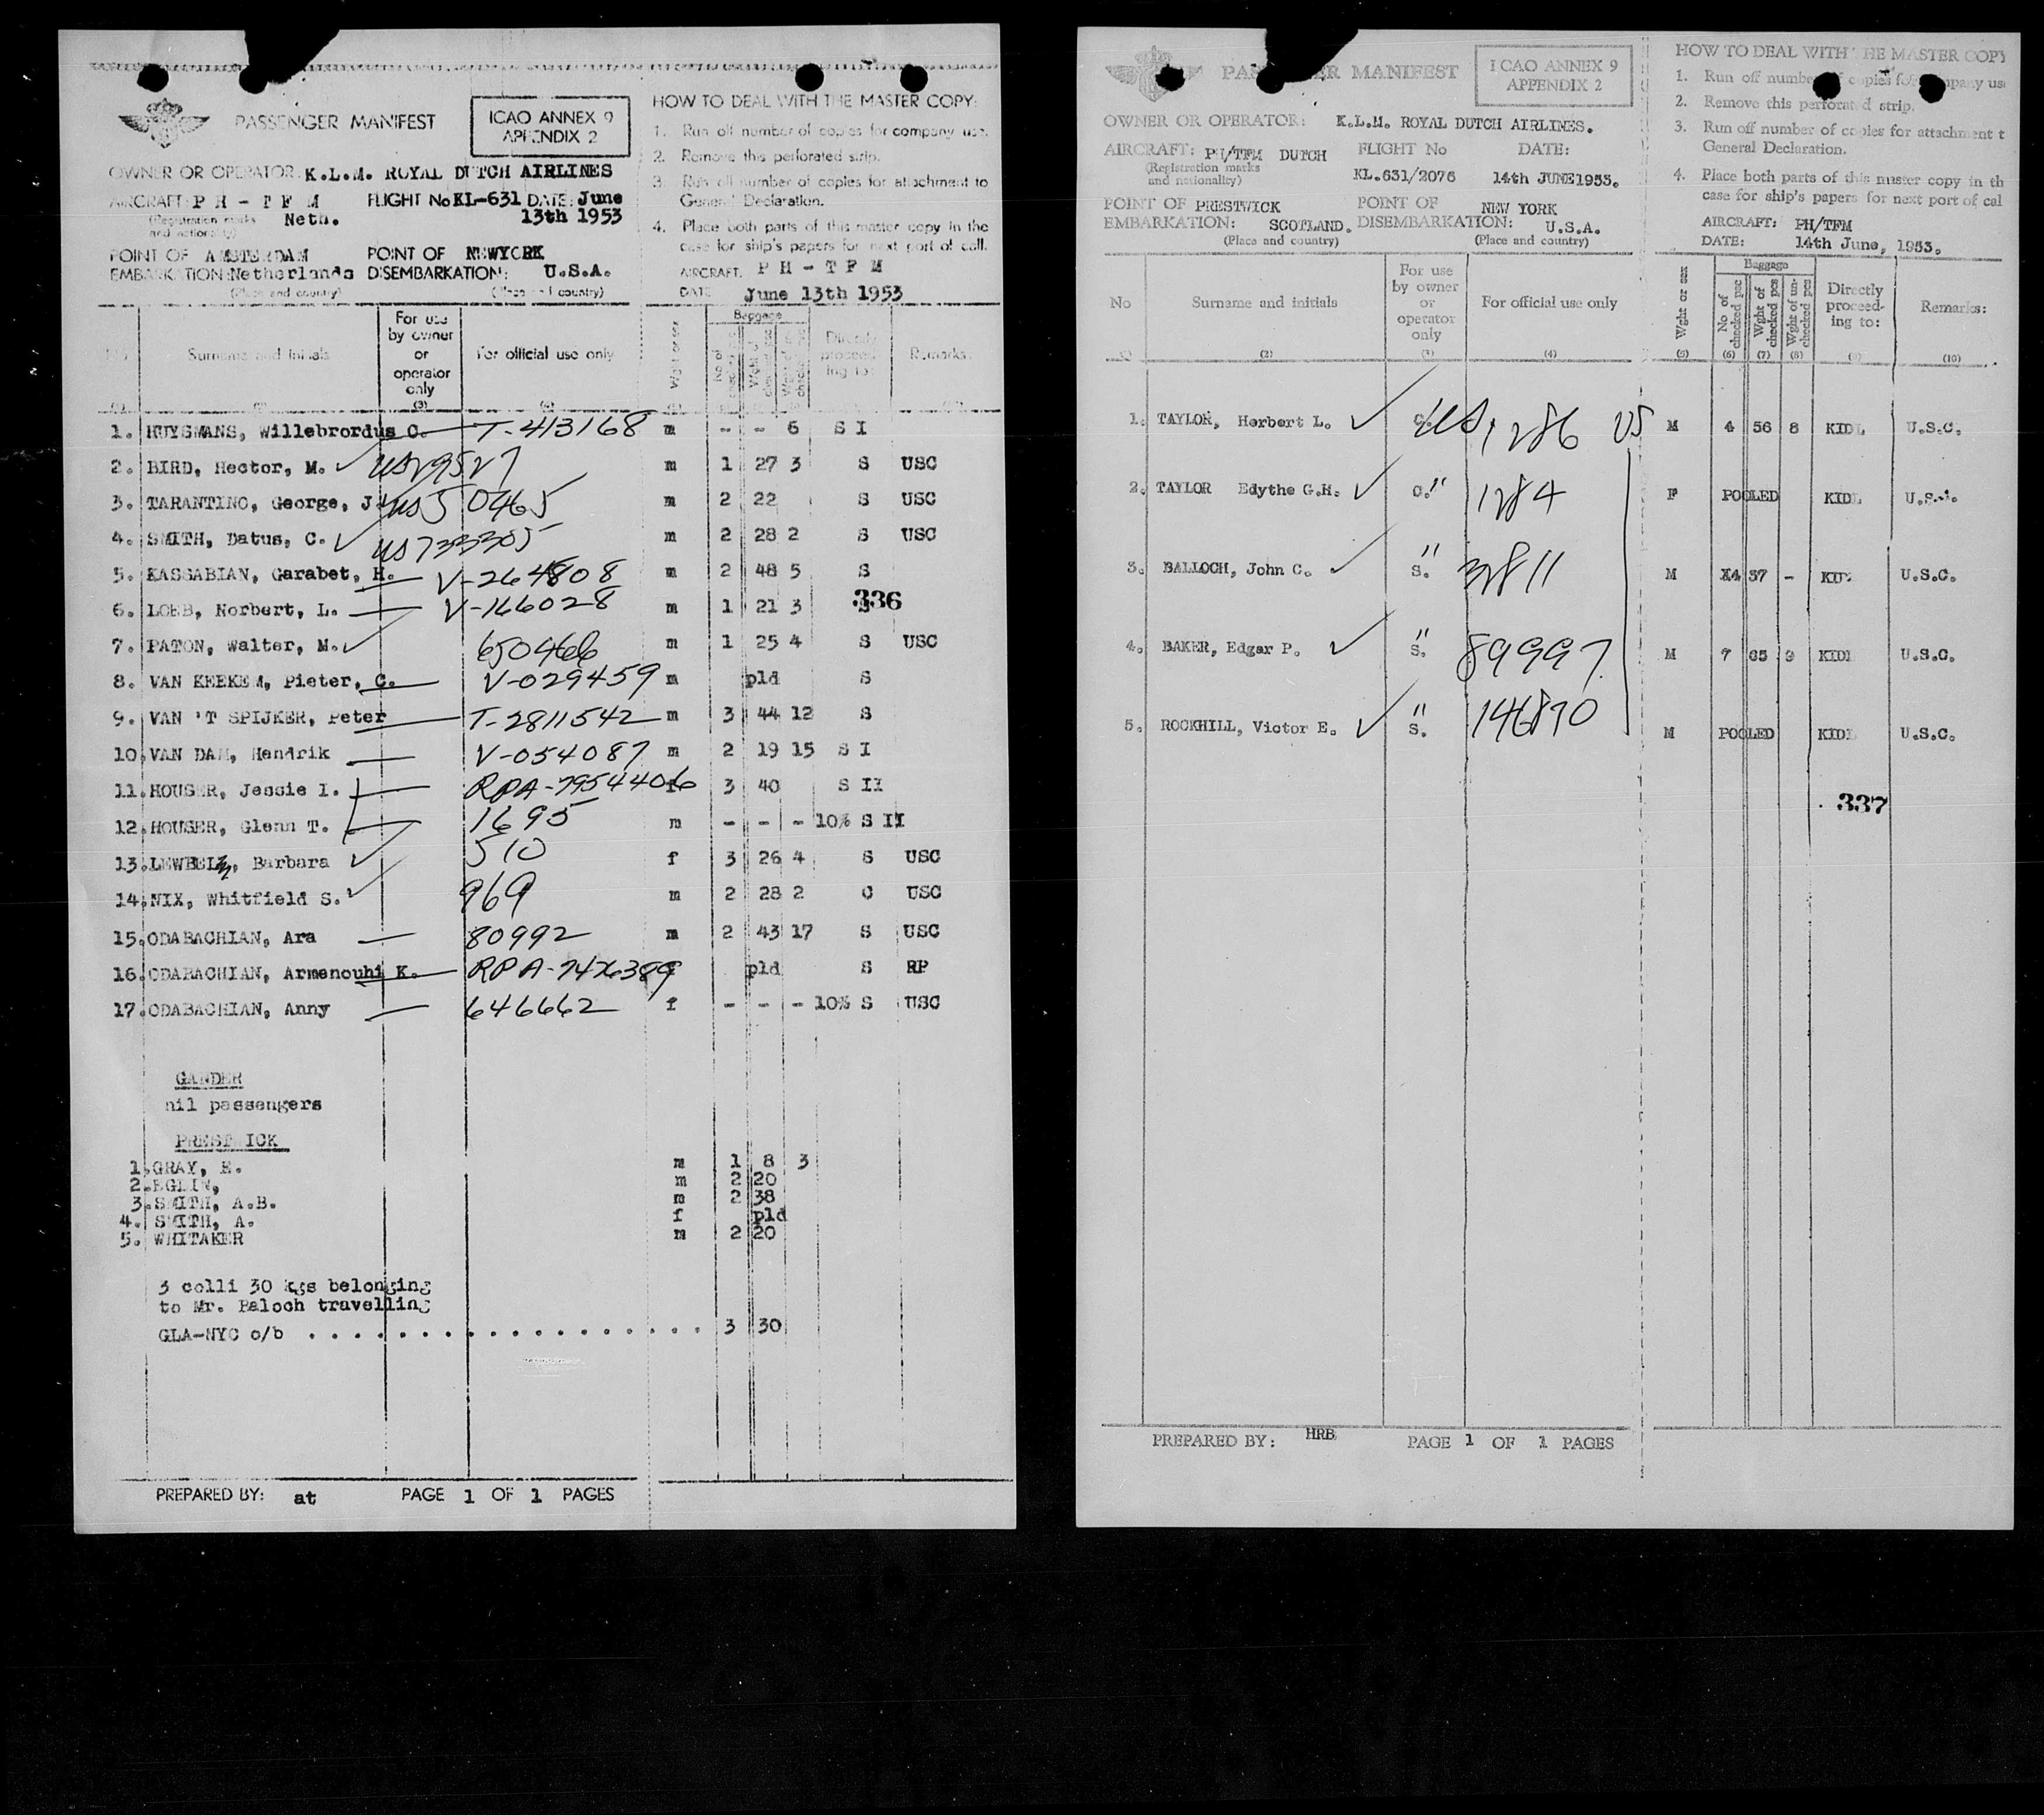 PASSENGER MANIFEST
ICAO ANNEX 9
APPENDIX 2
OWNER OR OPERATOR: K.L.M. ROYAL DUTCH AIRLINES
AIRCRAFT: P H - T F M FLIGHT No KL-631 DATE: June
(Registration marks and nationality) Neth. 13th 1953
POINT OF AMSTERDAM POINT OF NEWYORK
EMBARKATION: Netherlands DISEMBARKATION: U.S.A.
(Place and country) (Place and country)
HOW TO DEAL WITH THE MASTER COPY:
1. Run off number of copies for company use.
2. Remove this perforated strip.
3. Run off number of copies for attachment to
General Declaration.
4. Place both parts of this master copy in the
case for ship's papers for next port of call.
AIRCRAFT: P H - T F M
DATE June 13th 1953
No Surname and initials For use by owner or operator only For official use only Wght or sex Baggage Directly proceeding to: Remarks:
(3)
1. HUYSMANS, Willebrordus C. T-413168 m - - 6 S I
2. BIRD, Hector, M. US29527 m 1 27 3 S USC
3. TARANTINO, George, J. US50465 m 2 22 S USC
4. SMITH, Datus, C. US733305 m 2 28 2 S USC
5. KASSABIAN, Garabet, H. V-264808 m 2 48 5 S
6. LOEB, Norbert, L. V-166028 m 1 21 3 336
7. PATON, Walter, M. 650466 m 1 25 4 S USC
8. VAN KEEKEM, Pieter, C. V-029459 m pld S
9. VAN 'T SPIJKER, Peter T-2811542 m 3 44 12 S
10. VAN DAM, Hendrik V-054087 m 2 19 15 S I
11. HOUSER, Jessie I. RPA-7954406 f 3 40 S II
12. HOUSER, Glenn T. 1695 m - - - 10% S II
13. LEWBEL, Barbara 510 f 3 26 4 S USC
14. NIX, Whitfield S. 969 m 2 28 2 C USC
15. ODABACHIAN, Ara 80992 m 2 43 17 S USC
16. ODABACHIAN, Armenouhi K. RPA-7426389 pld S RP
17. ODABACHIAN, Anny 646662 f - - - 10% S USC
GANDER
nil passengers
PRESTWICK
1. GRAY, E. m 1 8 3
2. EGLIN, m 2 20
3. SMITH, A.B. m 2 38
4. SMITH, A. f pld
5. WHITAKER m 2 20
3 colli 30 kgs belonging
to Mr. Baloch travelling
GLA-NYC o/b . . . . . . . . . . . . . . . . . . 3 30
PREPARED BY: at PAGE 1 OF 1 PAGES
PASSENGER MANIFEST
ICAO ANNEX 9
APPENDIX 2
OWNER OR OPERATOR: K.L.M. ROYAL DUTCH AIRLINES.
AIRCRAFT: PH/TFM DUTCH FLIGHT No DATE:
(Registration marks and nationality) KL.631/2076 14th JUNE1953.
POINT OF PRESTWICK POINT OF NEW YORK
EMBARKATION: SCOTLAND. DISEMBARKATION: U.S.A.
(Place and country) (Place and country)
HOW TO DEAL WITH THE MASTER COPY
1. Run off number of copies for company use
2. Remove this perforated strip.
3. Run off number of copies for attachment t
General Declaration.
4. Place both parts of this master copy in th
case for ship's papers for next port of cal
AIRCRAFT: PH/TFM
DATE: 14th June, 1953.
No Surname and initials For use by owner or operator only For official use only Wght or sex Baggage No of checked pcs Wght of checked pcs Wght of un-checked pcs Directly proceed-ing to: Remarks:
(2) (3) (4) (5) (6) (7) (8) (9) (10)
1. TAYLOR, Herbert L. C. US 1286 US M 4 56 8 KIDL U.S.C.
2. TAYLOR Edythe G.H. C. " 1284 F POOLED KIDL U.S.C.
3. BALLOCH, John C. S. " 32811 M X4 37 - KIDL U.S.C.
4. BAKER, Edgar P. S. " 89997 M 7 65 9 KIDL U.S.C.
5. ROCKHILL, Victor E. S. " 146870 M POOLED KIDL U.S.C.
337
PREPARED BY: HRB PAGE 1 OF 1 PAGES